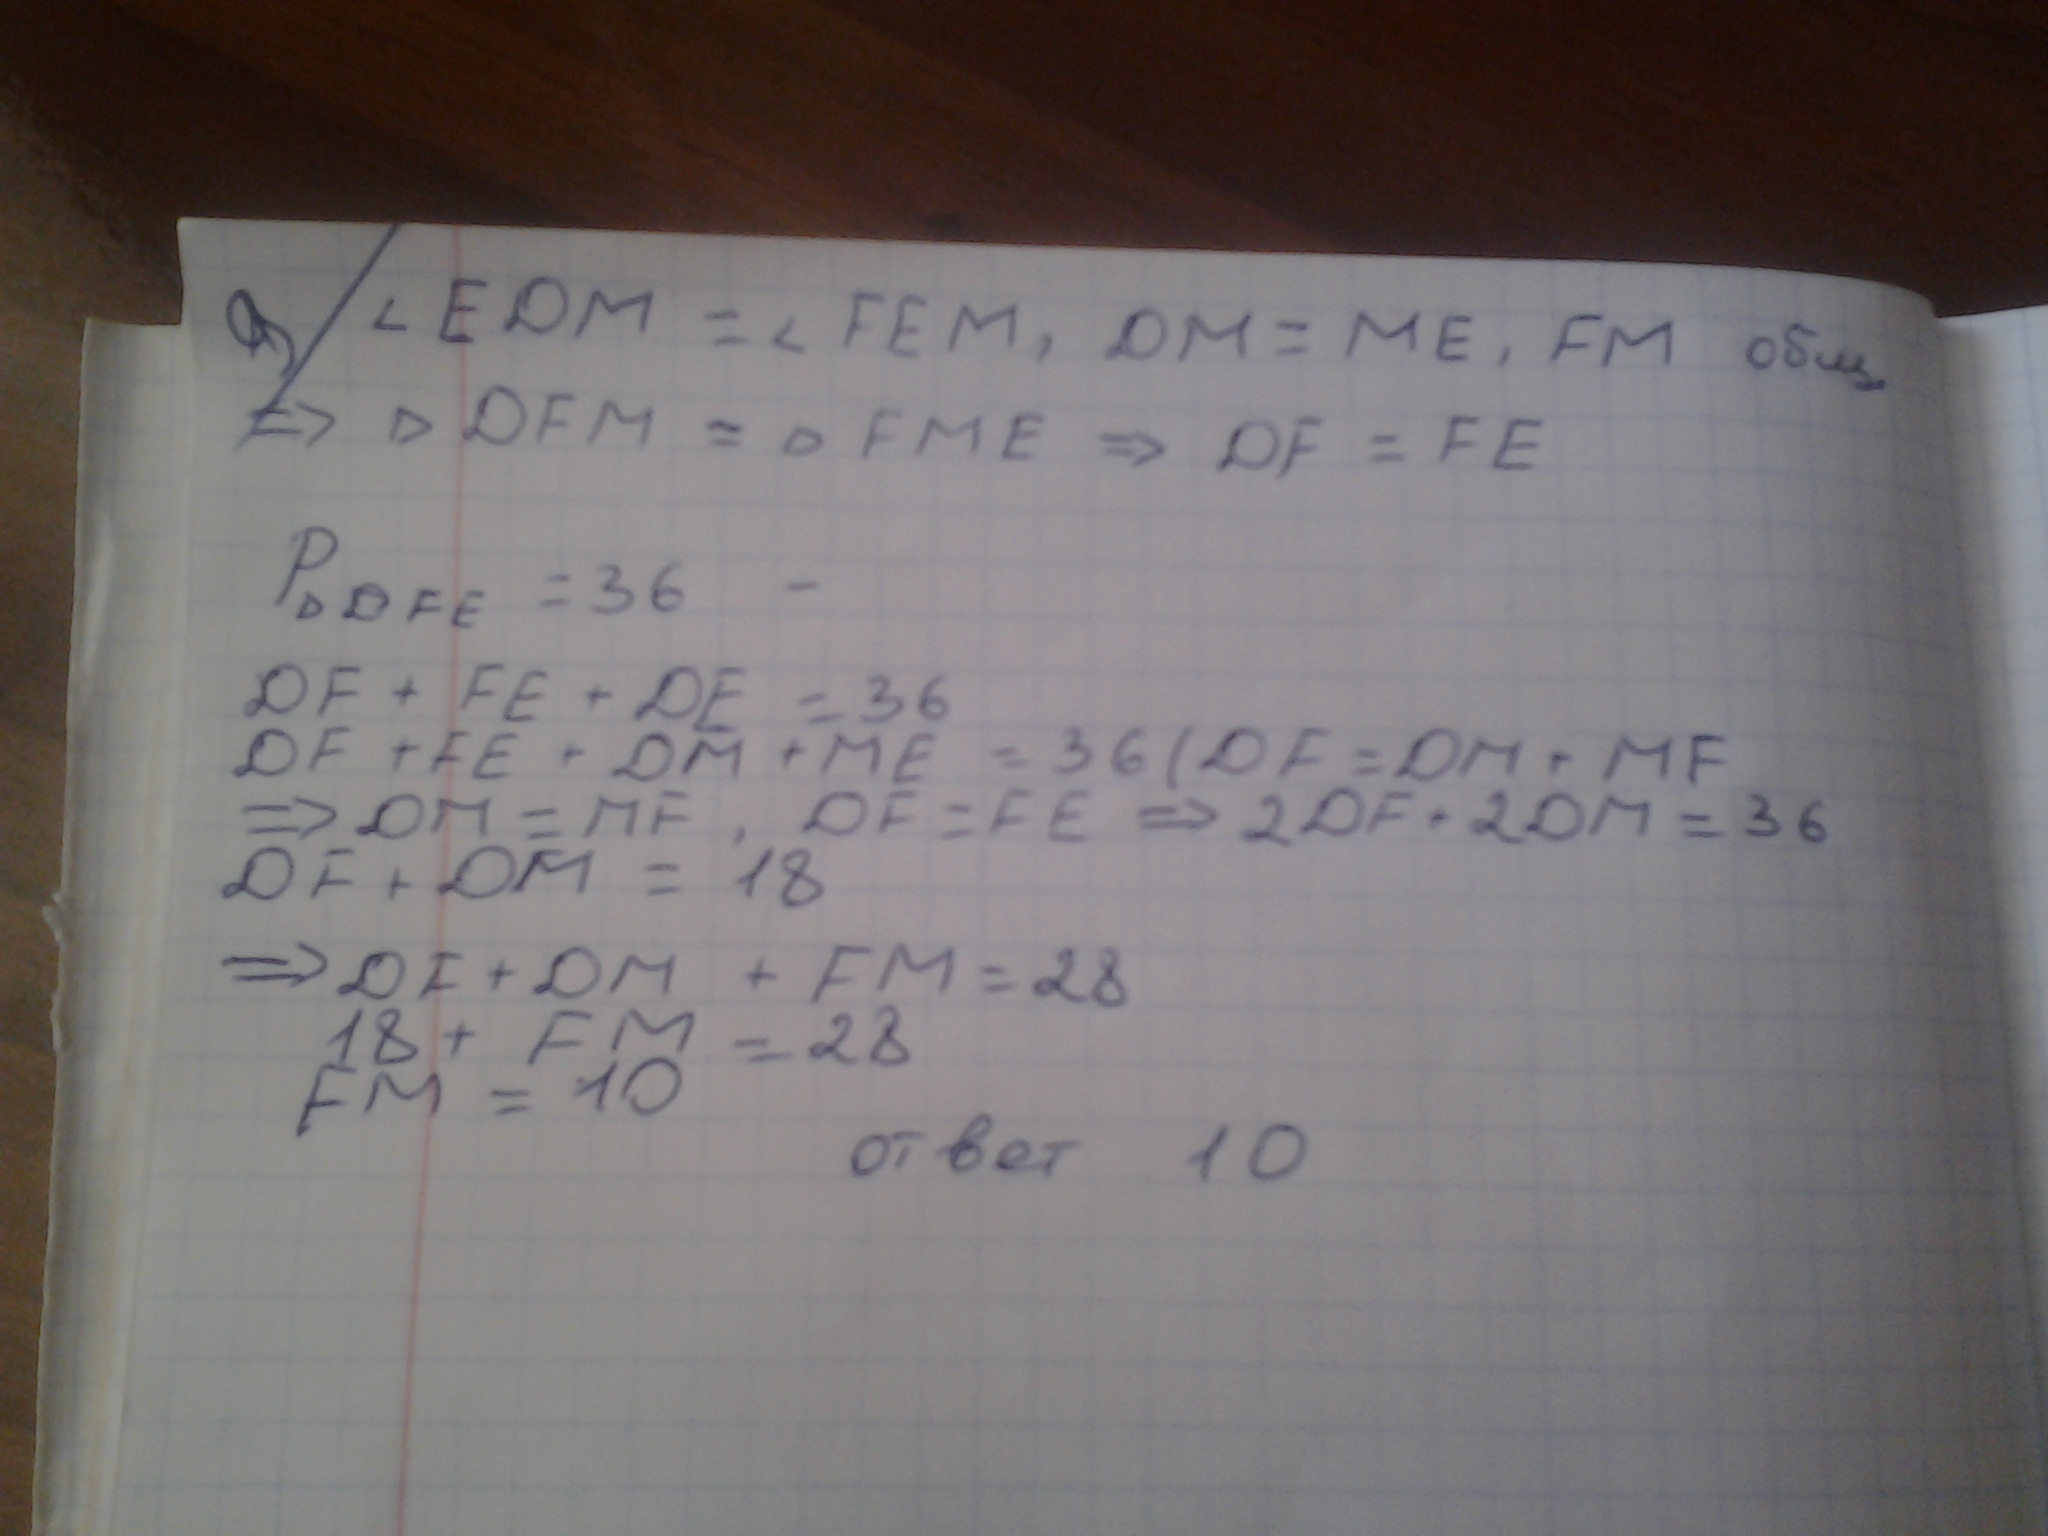 < EDM = < FEM, DM = ME, FM общ.
=> ▷ DFM = ▷ FME => DF = FE
P▷DFE = 36 -
DF + FE + DE = 36
DF + FE + DM + ME = 36 (DF = DM + MF
=> DM = MF, DF = FE => 2DF + 2DM = 36
DF + DM = 18
=> DF + DM + FM = 28
18 + FM = 28
FM = 10
ответ 10